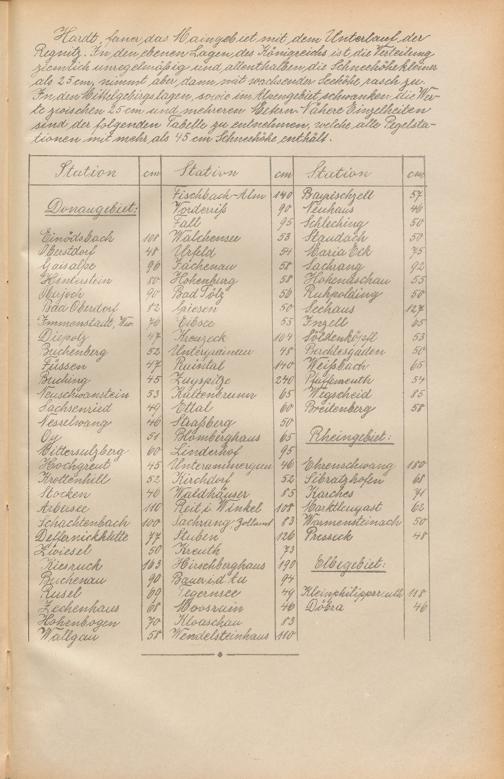 Hardt, ferner das Maingebiet mit dem Unterlauf der
Regnitz. In den ebenen Lagen des Königreichs ist die Verteilung
ziemlich unregelmäßig und allenthalben die Schneehöhe kleiner
als 25 cm, nimmt aber dann mit wachsender Seehöhe rasch zu.
In den Mittelgebirgslagen, sowie im Alpengebiet, schwanken die Wer-
te zwischen 25 cm und mehreren Metern. Nähere Einzelheiten
sind der folgenden Tabelle zu entnehmen, welche alle Pegelsta-
tionen mit mehr als 45 cm Schneehöhe enthält.
Station cm Station cm Station cm
Donaugebiet:
Einödsbach 108
Oberstdorf 48
Gaisalpe 96
80
90
Bad Oberdorf 82
Immenstadt, 70
Diepolz 47
Buchenberg 52
Füssen 47
Buching 45
Neuschwanstein 53
Sachsenried 49
Nesselwang 46
Oy 51
Mittersulzberg 60
Hochgreut 45
Krottenhill 52
Stocken 40
Arbersee 110
Schachtenbach 100
Deffernickhütte 77
Zwiesel 50
Riesruck 163
Buchenau 90
Rusel 69
Zechenhaus 68
Hohenbogen 70
Wallgau 58
Fischbach-Alm 140
Vorderriß 90
Fall 95
Walchensee 53
Urfeld 54
Jachenau 58
Hohenburg 58
Bad Tölz 56
Giesen 50
Eibsee 55
Kreuzeck 104
Untergrainau 48
Raintal 140
Zugspitze 240
Kaltenbrunn 65
Ettal 60
Straßberg 50
Blombergshaus 65
Linderhof 95
Unterammergau 46
Kirchdorf 52
Waldhäuser 85
Reit i. Winkel 108
Sachrang Zollamt 83
Stuben 126
Kreuth 73
Hirschberghaus 190
94
Tegernsee 49
Moosrain 46
Kloaschau 83
Wendelsteinhaus 110
Bayrischzell 57
Neuhaus 46
Schleching 50
Staudach 50
Maria Eck 75
Sachrang 92
Hohenaschau 55
Ruhpolding 50
Seehaus 127
Inzell 65
Söldenköpfl 53
Berchtesgaden 50
Weißbach 65
54
Wegscheid 85
Breitenberg 58
Rheingebiet:
Ehrenschwang 180
Sibratzhofen 68
Karches 71
Marktleugast 62
Warmensteinach 50
Presseck 48
Elbegebiet:
Kleinphilippsreuth 118
Döbra 46